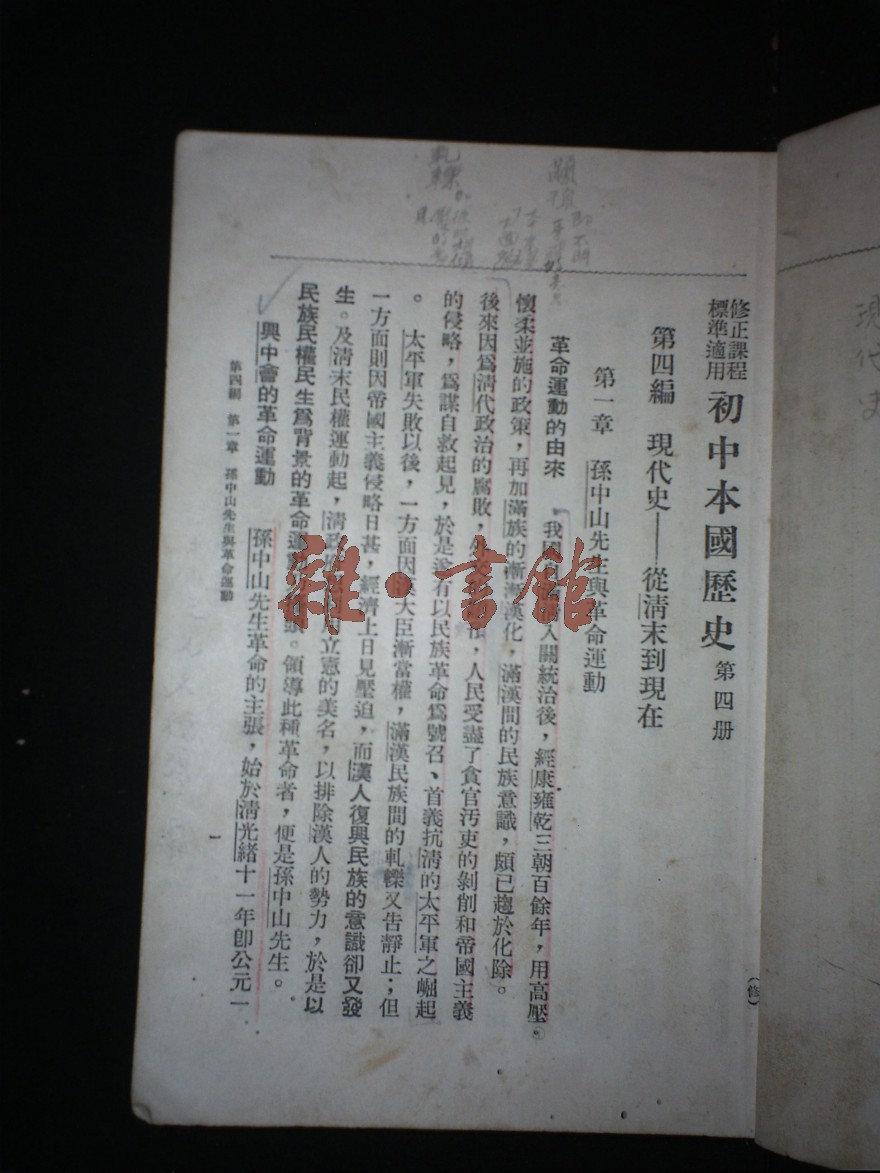 修正課程
標準適用
初中本國歷史 第四册
第四編 現代史——從清末到現在
第一章 孫中山先生與革命運動
革命運動的由來 我國自 入關統治後，經康雍乾三朝百餘年，用高壓
懷柔並施的政策，再加滿族的漸漸漢化，滿漢間的民族意識，頗已趨於化除。
後來因爲清代政治的腐敗， 人民受盡了貪官汚吏的剝削和帝國主義
的侵略，爲謀自救起見，於是遂有以民族革命爲號召、首義抗清的太平軍之崛起
。 太平軍失敗以後，一方面因 大臣漸當權，滿漢民族間的軋轢又告靜止；但
一方面則因帝國主義侵略日甚，經濟上日見壓迫，而漢人復興民族的意識卻又發
生。及清末民權運動起，清政 立憲的美名，以排除漢人的勢力，於是以
民族民權民生爲背景的革命運 領導此種革命者，便是孫中山先生。
興中會的革命運動 孫中山先生革命的主張，始於清光緒十一年卽公元一
第四編 第一章 孫中山先生與革命運動
一
（修）
雜·書館
軋轢